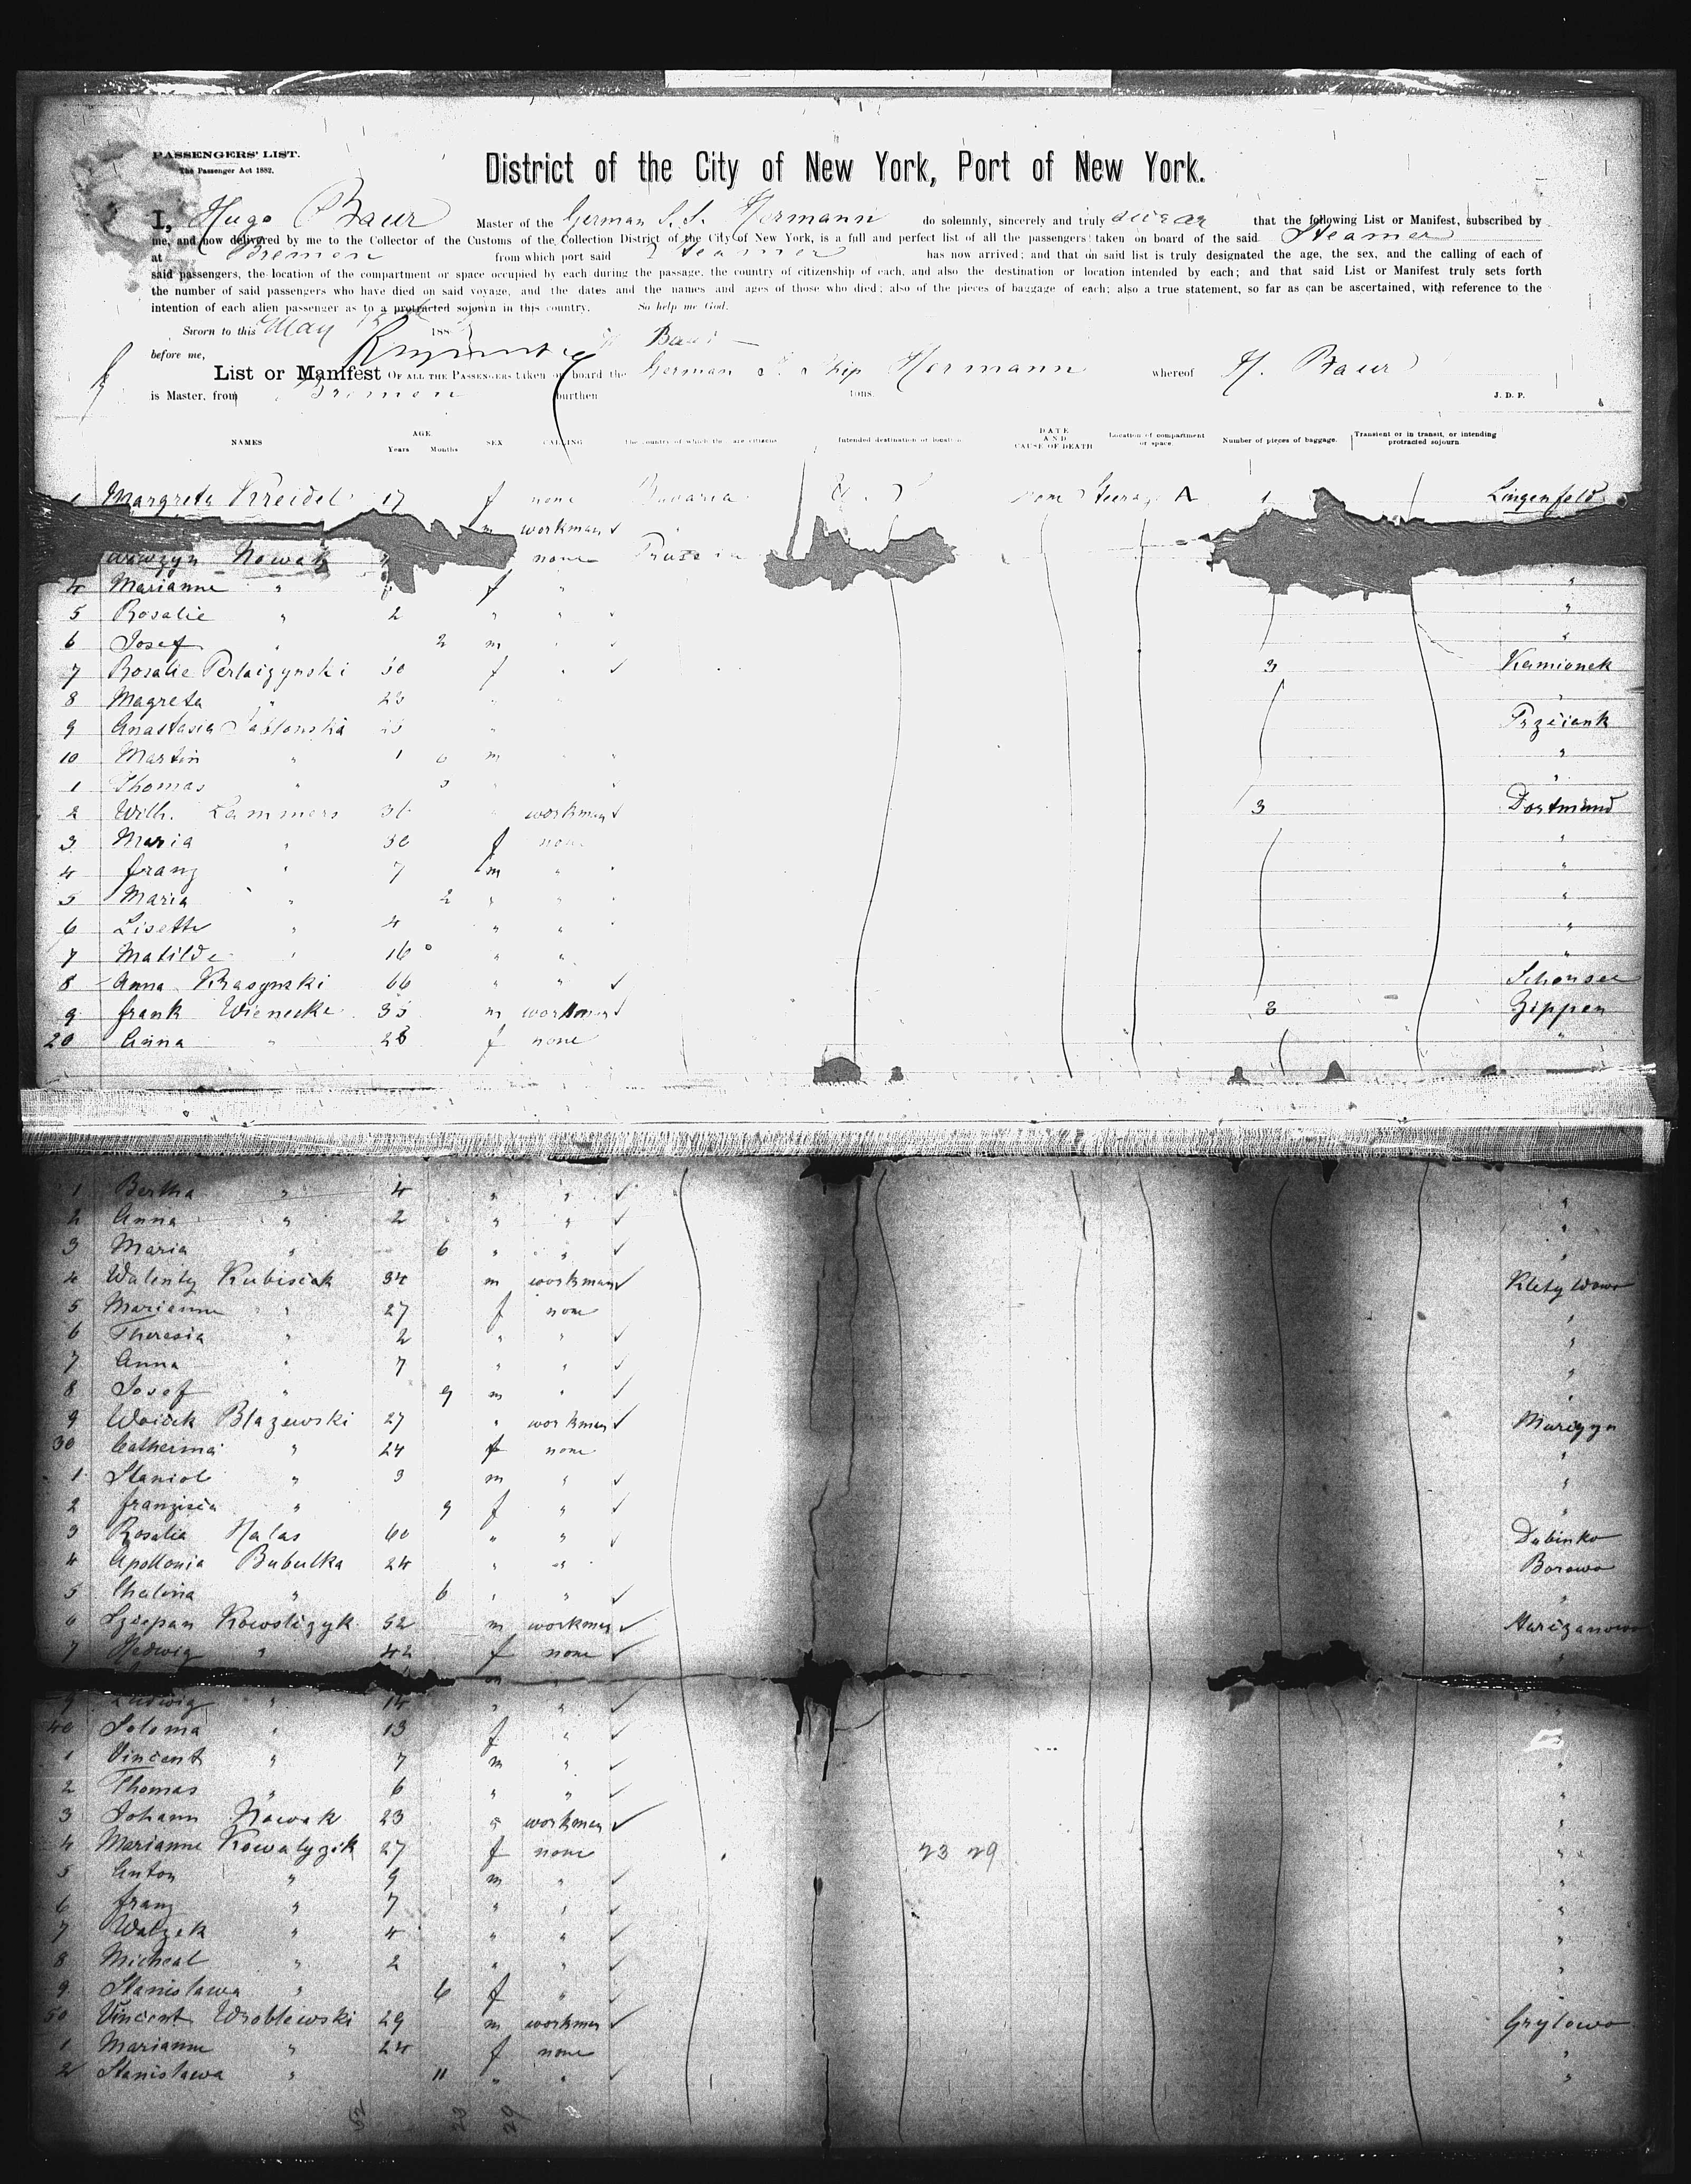 PASSENGERS' LIST.
The Passenger Act 1882.
District of the City of New York, Port of New York.
I, Hugo Baur Master of the German S.S. Hermann do solemnly, sincerely and truly swear that the following List or Manifest, subscribed by
me, and now delivered by me to the Collector of the Customs of the Collection District of the City of New York, is a full and perfect list of all the passengers taken on board of the said Steamer
at Bremen from which port said Steamer has now arrived; and that on said list is truly designated the age, the sex, and the calling of each of
said passengers, the location of the compartment or space occupied by each during the passage, the country of citizenship of each, and also the destination or location intended by each; and that said List or Manifest truly sets forth
the number of said passengers who have died on said voyage, and the dates and the names and ages of those who died; also of the pieces of baggage of each; also a true statement, so far as can be ascertained, with reference to the
intention of each alien passenger as to a protracted sojourn in this country. So help me God.
Sworn to this May 188
before me, Baur
List or Manifest OF ALL THE PASSENGERS taken on board the German S. Ship Hermann whereof H. Baur
is Master, from Bremen burthen tons. J. D. P.
NAMES AGE Years Months SEX CALLING The country of which they are citizens Intended destination or location DATE AND CAUSE OF DEATH Location of compartment or space Number of pieces of baggage. Transient or in transit, or intending protracted sojourn
1 Margreta Kreidel 17 f none Bavaria A 1 Lingenfeld
m workman
Nowak none Prussia
4 Marianne " f "
5 Rosalie " 2 " " "
6 Josef " 2 m " "
7 Rosalie 30 f " 3 Kamionek
8 Magreta " 23 " " "
9 Anastasia Jablonska " Przciank
10 Martin " 1 m " "
1 Thomas " 3 "
2 Wilh. Lammers workman 3 Dortmund
3 Maria " 30 f none "
4 franz " 7 m " "
5 Maria " 2 " " "
6 Lisette " 4 " " "
7 Matilde " 16 " " "
8 Anna Krasynski 66 " " Schönsee
9 frank Wienecke 35 m workman 3 Zippen
20 Anna " 28 f none "
1 Bertha " 4 " " "
2 Anna " 2 " " "
3 Maria " 6 " " "
4 Walenty Kubisiak 34 m workman
5 Marianne " 27 f none "
6 Theresia " 2 " " "
7 Anna " 7 " " "
8 Josef " 9 m " "
9 Woisek Blazewski 27 " workman
30 Catherina " 24 f none "
1 Staniol " 3 m " "
2 franzisca " 9 f " "
3 Rosalia Halas 60 " " Dubinko
4 Apollonia Bubulka 24 " " Borowo
5 " 6 " " "
6 Szcepan 52 m workman
7 Hedwig " 42 f none "
9 Ludwig " 14 " " "
40 Soloma " 13 f " "
1 Vincent " 7 m " "
2 Thomas " 6 " " "
3 Johann Nowak 23 " workman "
4 Marianne Kowalyzik 27 f none 23 29 "
5 Anton " 9 m " "
6 franz " 7 " " "
7 Walzek " 4 " " "
8 Micheal " 2 " " "
9 Stanislawa " 6 f " "
50 Vincent Wroblewski 29 m workman Grylowo
1 Marianne " 24 f none "
2 Stanislawa " 11 " " "
52 23 29